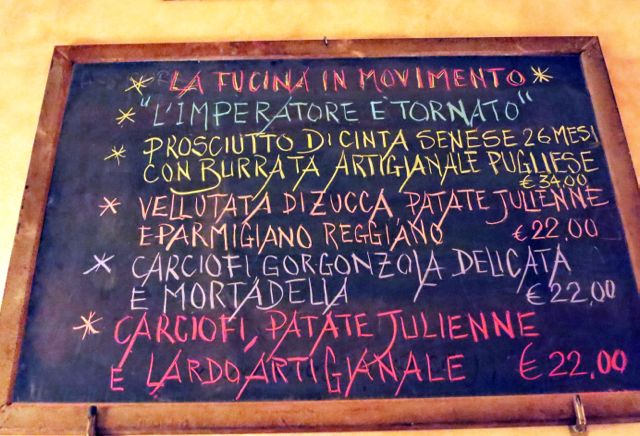 * LA FUCINA IN MOVIMENTO *
* "L'IMPERATORE È TORNATO"
* PROSCIUTTO DI CINTA SENESE 26 MESI
CON BURRATA ARTIGIANALE PUGLIESE
€ 34,00
* VELLUTATA DI ZUCCA, PATATE JULIENNE
E PARMIGIANO REGGIANO € 22,00
* CARCIOFI, GORGONZOLA DELICATA
E MORTADELLA € 22,00
* CARCIOFI, PATATE JULIENNE
E LARDO ARTIGIANALE € 22,00